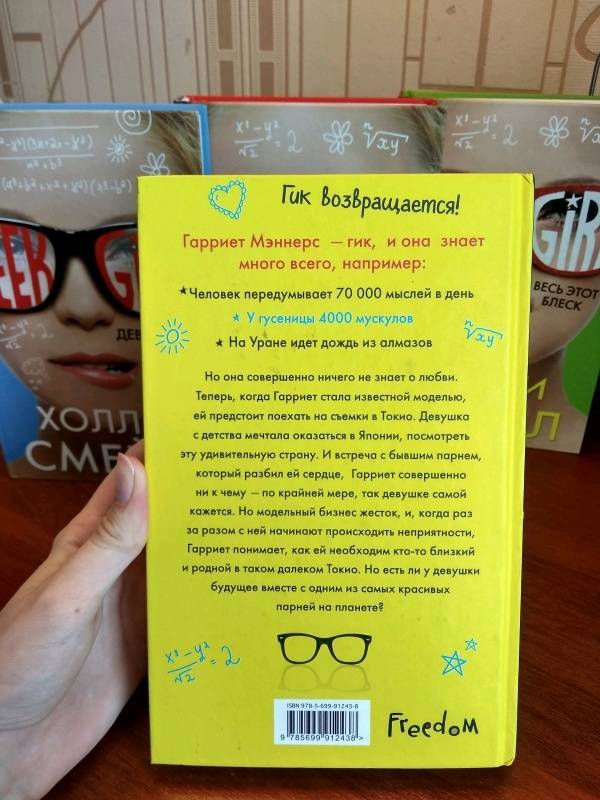 x³-y²
√2 = 2
ⁿ√xy
x³-y²
√2 = 2
ⁿ√xy
EEK
GI
GIRL
ДЕВ
ВЕСЬ ЭТОТ
БЛЕСК
ХОЛЛ
СМЕЙ
Л
Гик возвращается!
Гарриет Мэннерс — гик, и она знает
много всего, например:
★Человек передумывает 70 000 мыслей в день
★ У гусеницы 4000 мускулов
★ На Уране идет дождь из алмазов
ⁿ√xy
Но она совершенно ничего не знает о любви.
Теперь, когда Гарриет стала известной моделью,
ей предстоит поехать на съемки в Токио. Девушка
с детства мечтала оказаться в Японии, посмотреть
эту удивительную страну. И встреча с бывшим парнем,
который разбил ей сердце, Гарриет совершенно
ни к чему — по крайней мере, так девушке самой
кажется. Но модельный бизнес жесток, и, когда раз
за разом с ней начинают происходить неприятности,
Гарриет понимает, как ей необходим кто-то близкий
и родной в таком далеком Токио. Но есть ли у девушки
будущее вместе с одним из самых красивых
парней на планете?
x³-y²
√2 = 2
ISBN 978-5-699-91243-8
9 785699 912438 >
Freedom